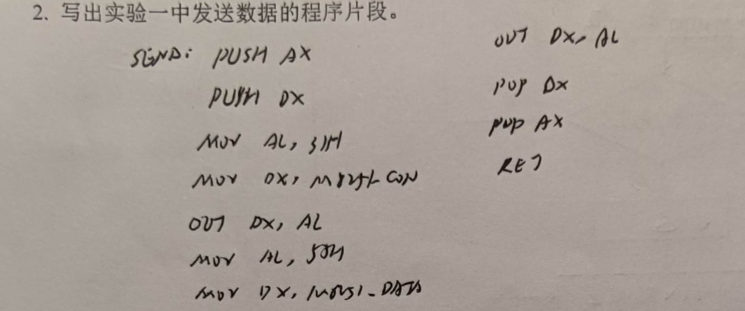 2. 写出实验一中发送数据的程序片段。
SEND: PUSH AX
PUSH DX
MOV AL, 31H
MOV DX, M8251_CON
OUT DX, AL
MOV AL,
MOV DX, M8251_DATA
OUT DX, AL
POP DX
POP AX
RET